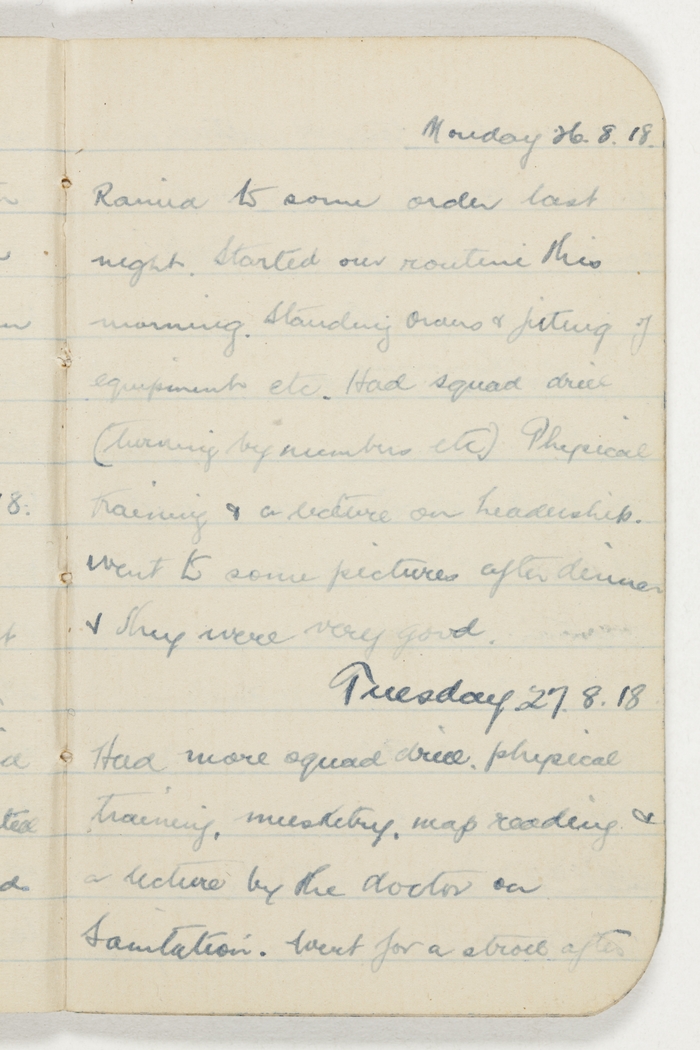 Monday 26.8.18.
Rained to some order last
night. Started our routine this
morning. Standing orders & fitting of
equipment etc. Had squad drill
(turning by numbers etc) Physical
training & a lecture on leadership.
Went to some pictures after dinner
& they were very good.
Tuesday 27.8.18
Had more squad drill, physical
training, musketry, map reading &
a lecture by the doctor on
Sanitation. Went for a stroll after